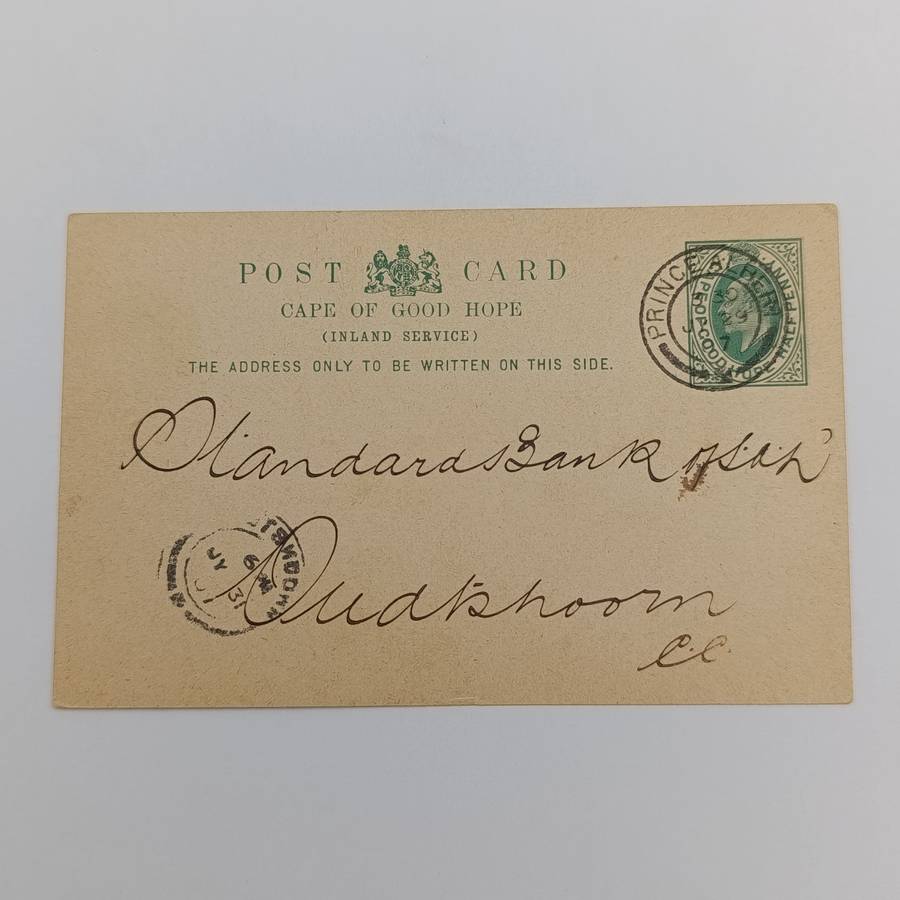 POST CARD
CAPE OF GOOD HOPE
(INLAND SERVICE)
THE ADDRESS ONLY TO BE WRITTEN ON THIS SIDE.
PRINCE ALBERT
HALF PENNY
Standard Bank of S.A. Ld
Oudtshoorn
C.C.
JY 31